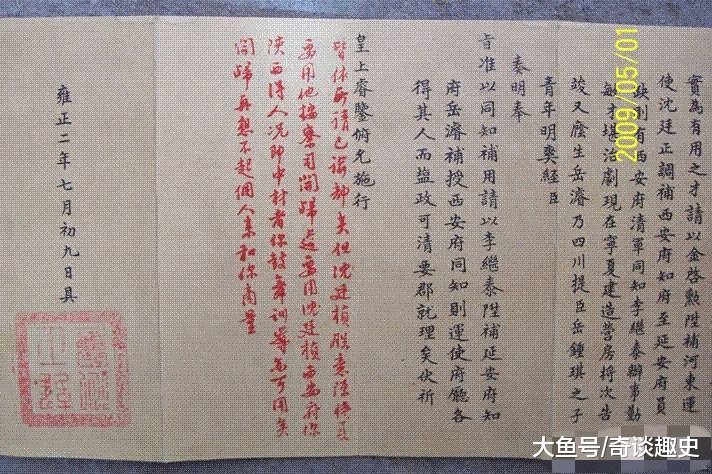 實為有用之才請以金啓勲陞補河東運
使沈廷正調補西安府知府至延安府員
缺則有西安府清軍同知李繼泰辦事勤
敏才堪治劇現在寧夏建造營房將次告
竣又廕生岳濬乃四川提臣岳鍾琪之子
青年明爽經臣
奏明奉
旨准以同知補用請以李繼泰陞補延安府知
府岳濬補授西安府同知則運使府廳各
得其人而鹽政可清要郡就理矣伏祈
皇上睿鑒俯允施行
皆依所請已諭部矣但沈廷楨朕意陝
要用他按察司開歸道要用沈廷楨西安府你
陝西得人況即中材者你鼓舞訓導為可用矣
開歸再想不起個人來和你商量
雍正二年七月初九日具
2009/05/01
大鱼号/奇谈趣史